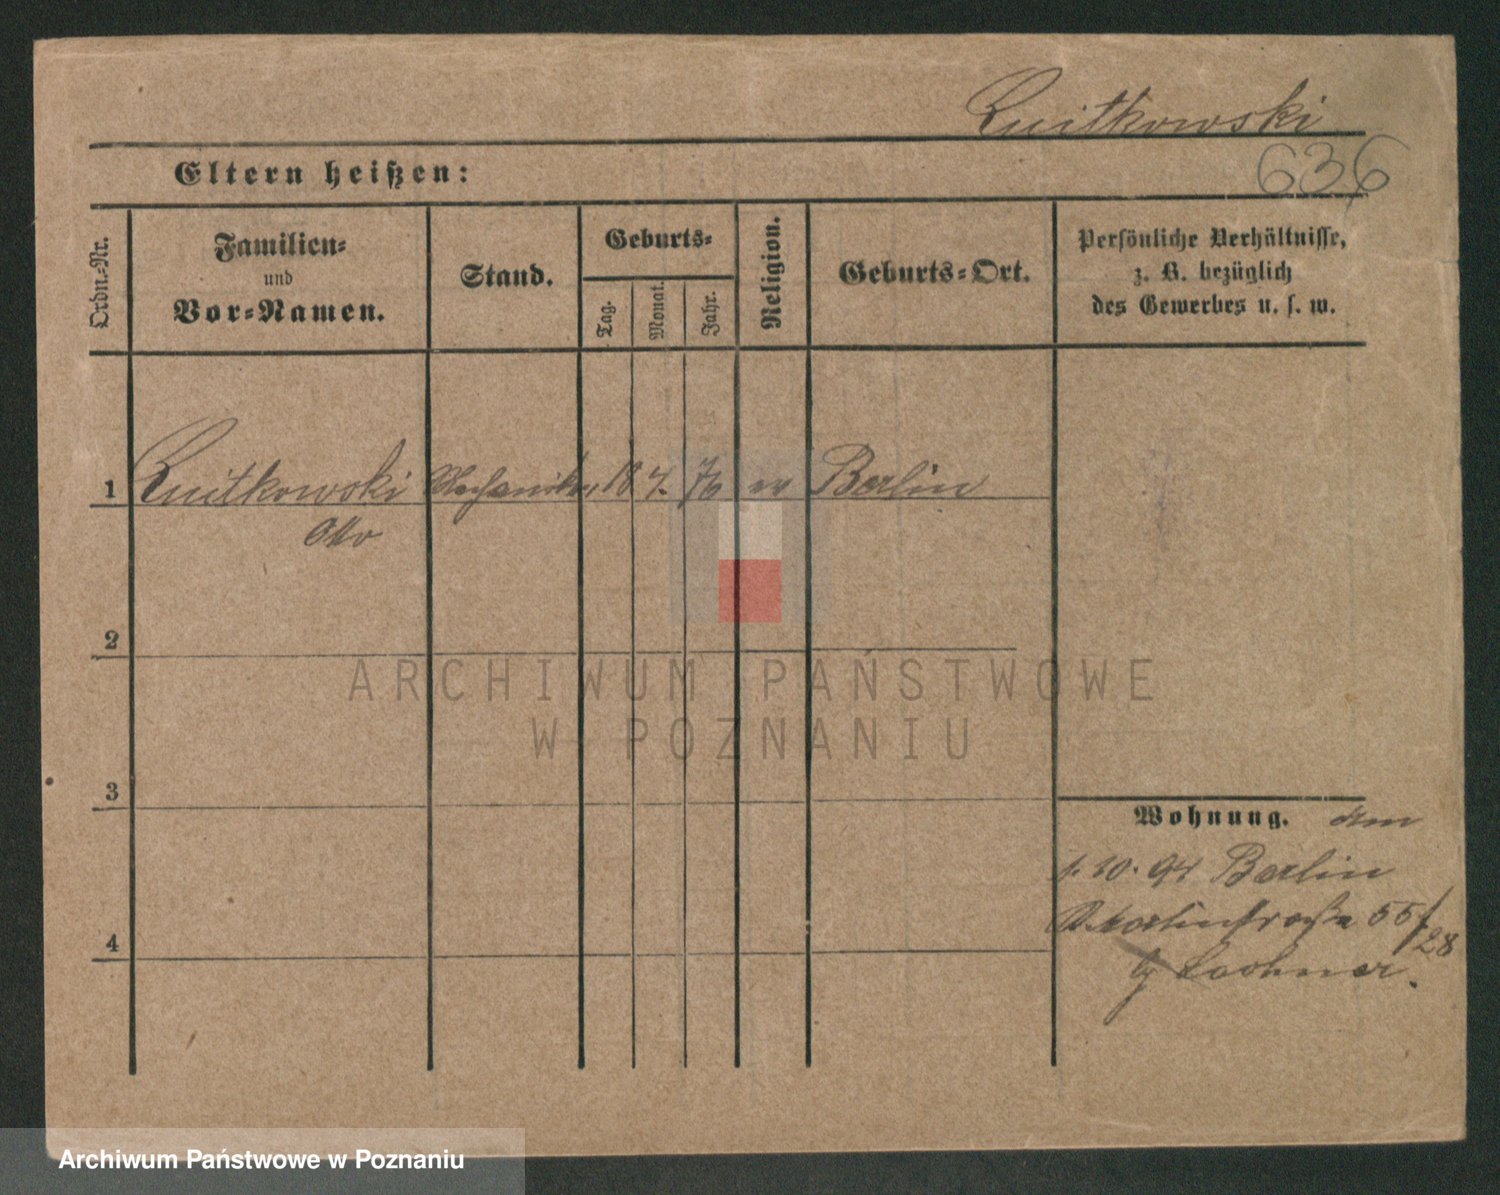 Luitkowski
636
Eltern heißen:
Ordn.-Nr.
Familien-
und
Vor-Namen.
Stand.
Geburts-
Tag.
Monat.
Jahr.
Religion.
Geburts-Ort.
Persönliche Verhältnisse,
z. B. bezüglich
des Gewerbes u. s. w.
1 Luitkowski Mechaniker 18 7. 76 ev Berlin
Otto
2
3
4
Wohnung. Am
1. 10. 94 Berlin
55/28
ARCHIWUM PAŃSTWOWE
W POZNANIU
Archiwum Państwowe w Poznaniu